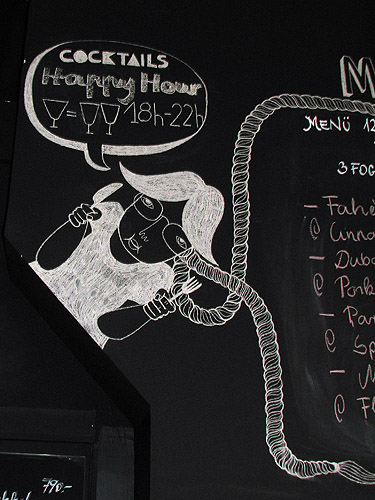 COCKTAILS
Happy Hour
= 18h-22h
M
MENÜ 12
3 FOG
-
@
- Duba
@ Pork
- Par
@ Sp
-
@
790.-